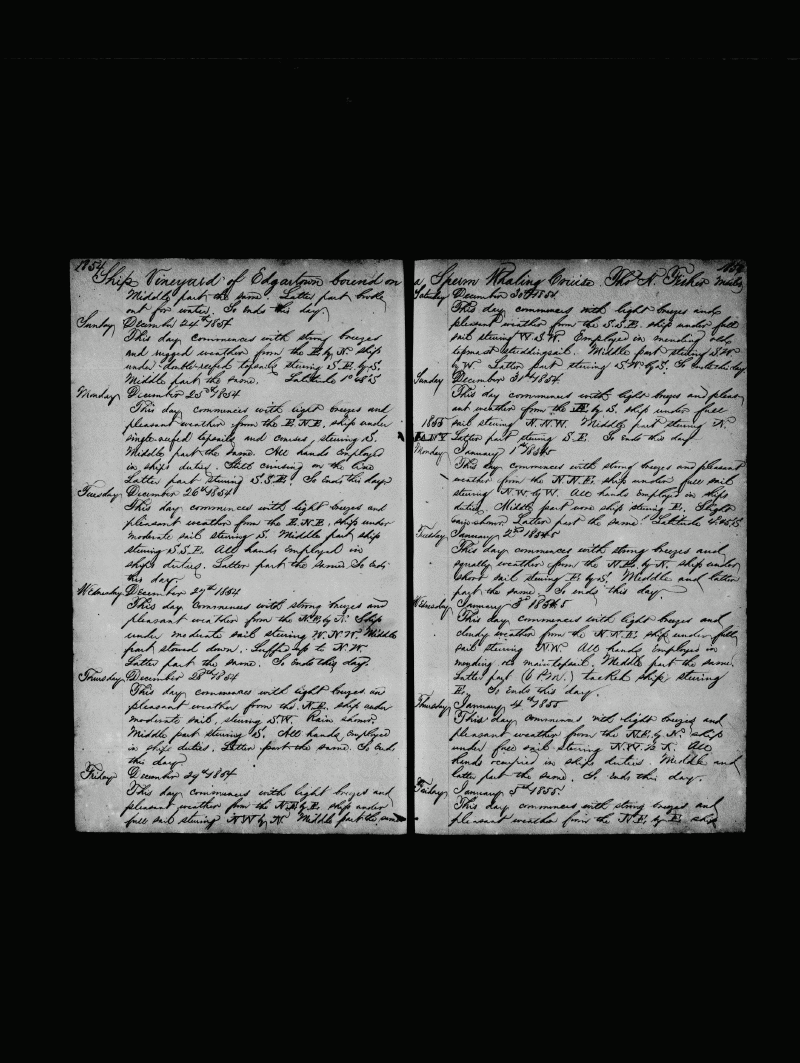 1854
Ship Vineyard of Edgartown bound on
Middle part the same. Latter part broke
out for water. So ends this day.
Sunday December 24th 1854
This day commences with strong breezes
and rugged weather from the E. by N. ship
under double reefed topsails steering S.E. by S.
Middle part the same. Latitude 1°
Monday December 25th 1854
This day commences with light breezes and
pleasant weather from the E.N.E. ship under
single reefed topsails and courses, steering S.
Middle part the same. All hands employed
in ships duties. Still cruising on the Line
Latter part steering S.S.E. So ends this day
Tuesday December 26th 1854
This day commences with light breezes and
pleasant weather from the E.N.E. ship under
moderate sail steering S. Middle part ship
steering S.S.E. All hands employed in
ships duties. Latter part the same. So ends
this day.
Wednesday December 27th 1854
This day commences with strong breezes and
pleasant weather from the N.E. by N. Ship
under moderate sail steering W.N.W. Middle
part down. Luffed up to N.W.
Latter part the same. So ends this day
Thursday December 28th 1854
This day commences with light breezes an
pleasant weather from the N.E. ship under
moderate sail, steering S.W. Rain shower.
Middle part steering S. All hands employed
in ships duties. Latter part the same. So ends
this day
Friday December 29th 1854
This day commences with light breezes and
pleasant weather from the N.E. by E. ship under
full sail steering N.W. by N. Middle part the same
a Sperm Whaling Cruise. Tho N. Fisher Master
Saturday December 30th 1854.
This day commences with light breezes and
pleasant weather from the S.S.E. ship under full
sail steering W.S.W. Employed in mending old
topmast studdingsail. Middle part steering S.W.
by W. Latter part steering S.W. by S. So ends this day
Sunday December 31st 1854.
This day commences with light breezes and pleas
ant weather from the E. by S. ship under full
1855 sail steering N.N.W. Middle part steering N.
Latter part steering S.E. So ends this day
Monday January 1st 1855
This day commences with strong breezes and pleasant
weather from the N.N.E. ship under full sail
steering N.W. by W. All hands employed in ships
duties. Middle part wore ship steering E. Slight
rain shower. Latter part the same. Latitude
Tuesday January 2nd 1855
This day commences with strong breezes and
squally weather from the N.E. by N. ship under
short sail steering E. by S. Middle and latter
part the same. So ends this day.
Wednesday January 3d 1855
This day commences with light breezes and
cloudy weather from the N.N.E. ship under full
sail steering N.W. All hands employed in
mending the maintopsail. Middle part the same.
Latter part (6 P.M.) tacked ship steering
E. So ends this day.
Thursday January 4th 1855
This day commences with light breezes and
pleasant weather from the N.E. by N. ship
under full sail steering N.W. by N. All
hands occupied in ships duties. Middle and
latter part the same. So ends this day.
Friday January 5th 1855
This day commences with strong breezes and
pleasant weather from the N.E. by E. ship